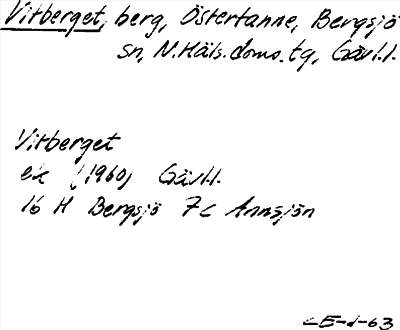 Vitberget, berg, Östertanne, Bergsjö
sn, N.Häls.doms.tg, Gävl.l.
Vitberget
ek (1960) Gävl.l.
16 H Bergsjö 7c Annsjön